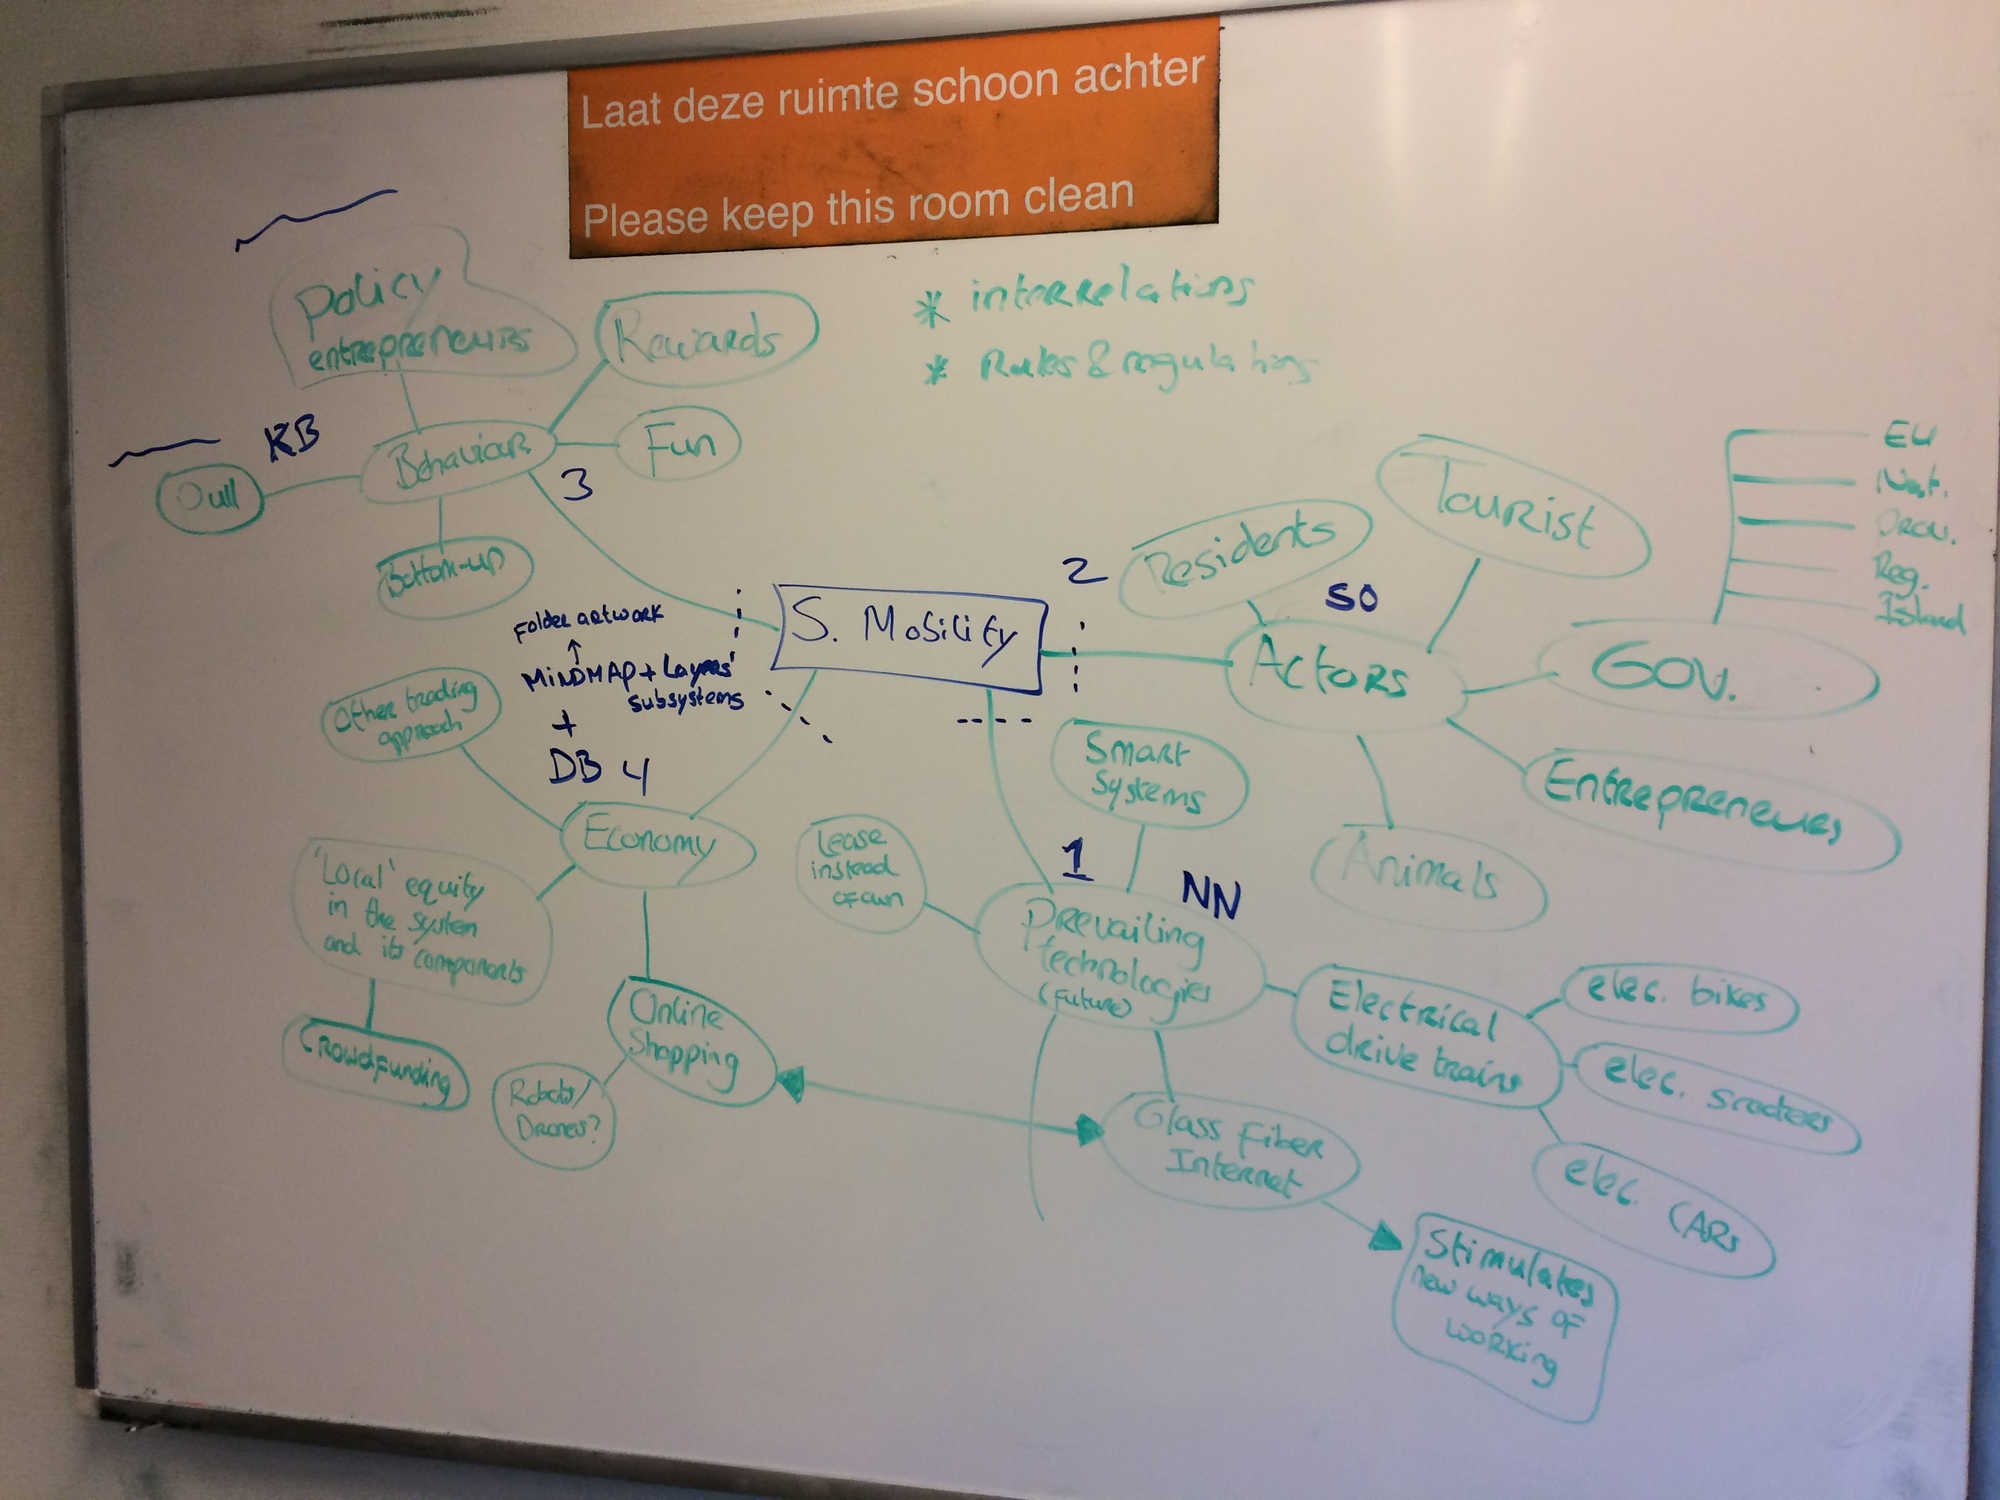 Laat deze ruimte schoon achter
Please keep this room clean
* interrelations
* Rules & regulations
Policy
entrepreneurs
Rewards
Fun
KB
Behaviour
3
Bottom-up
Folder artwork
MINDMAP + Layers'
subsystems
+
DB
4
S. Mobility
2
Residents
Tourist
SO
Actors
Gov.
EU
Nat.
Prov.
Reg.
Island
Entrepreneurs
Animals
Other trading
approach
Economy
'Local' equity
in the system
and its components
Crowdfunding
Online
Shopping
Robots/
Drones?
Smart
Systems
1
NN
Lease
instead
of own
Prevailing
technologies
(Future)
Electrical
drive trains
elec. bikes
elec. scooters
elec. CARs
Glass Fiber
Internet
Stimulates
new ways of
working